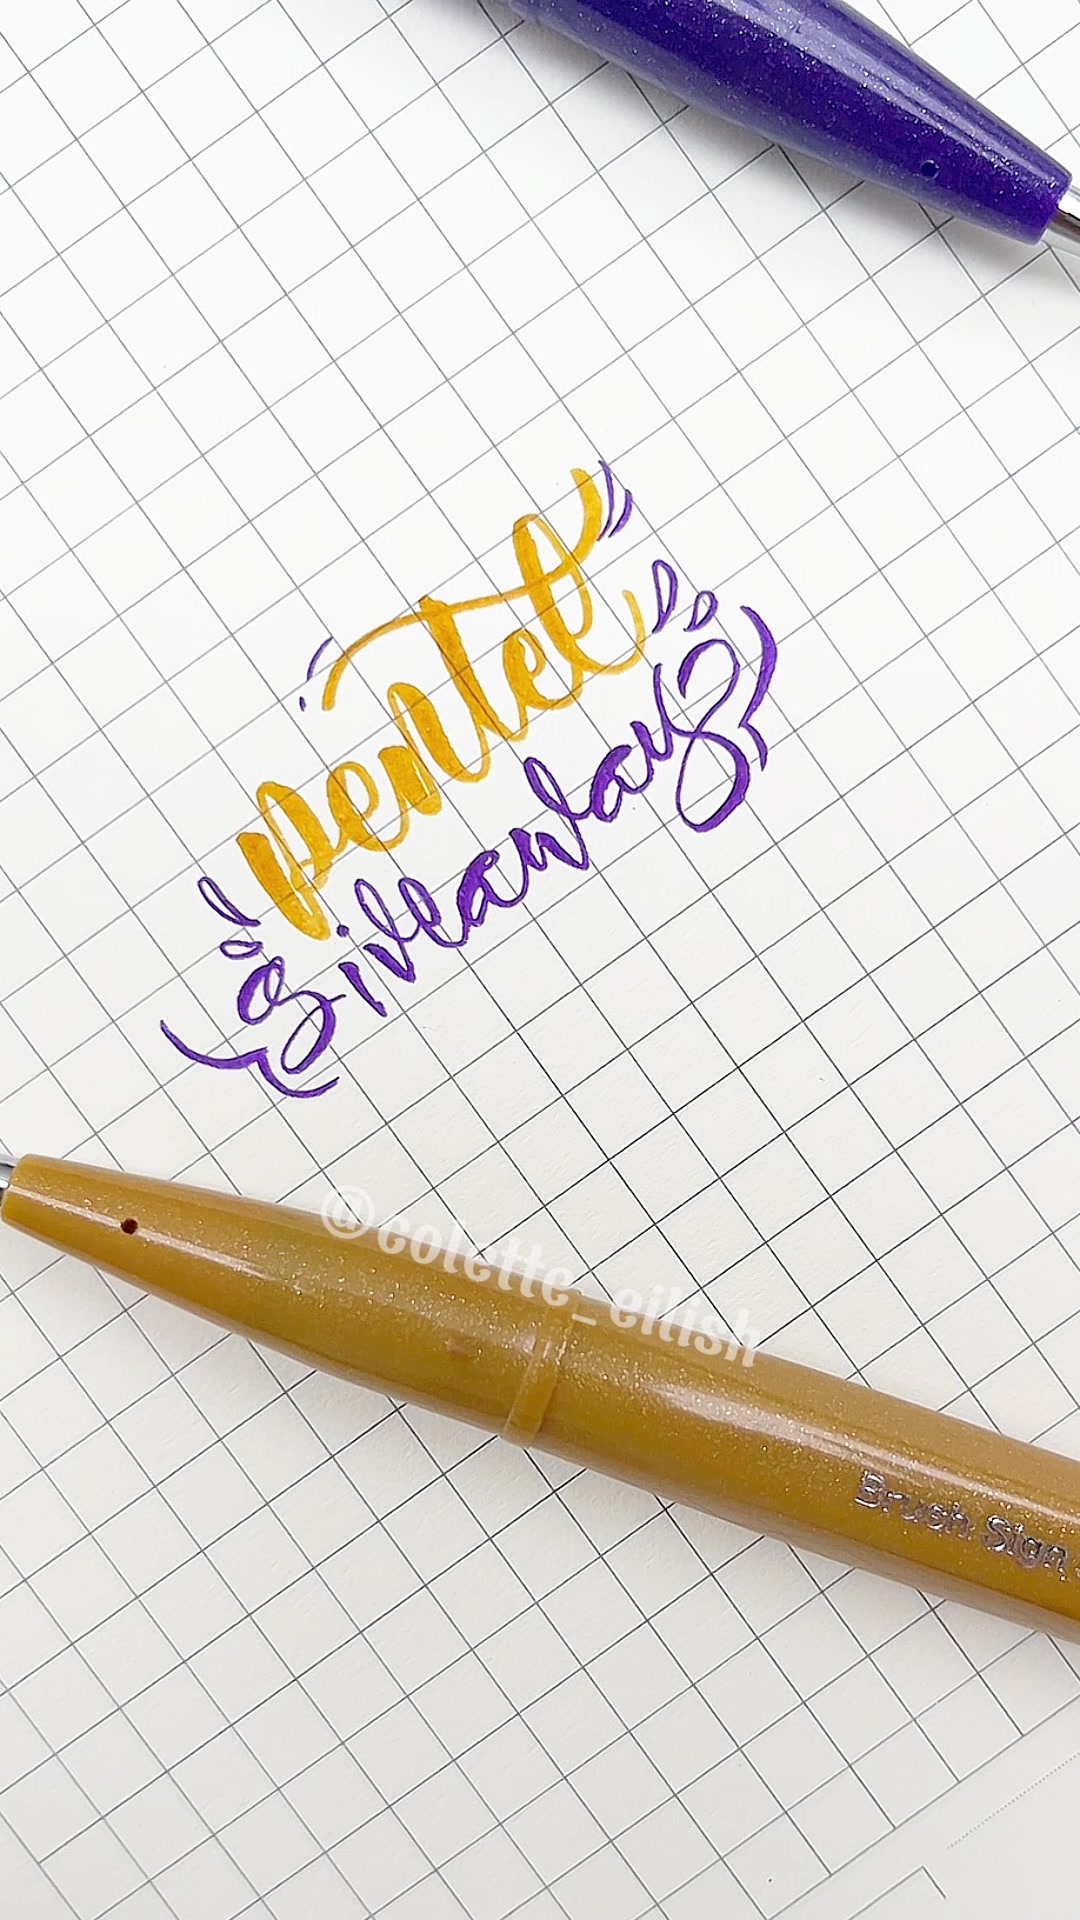 pentel
giveaway
@colette_eilish
Brush Sign